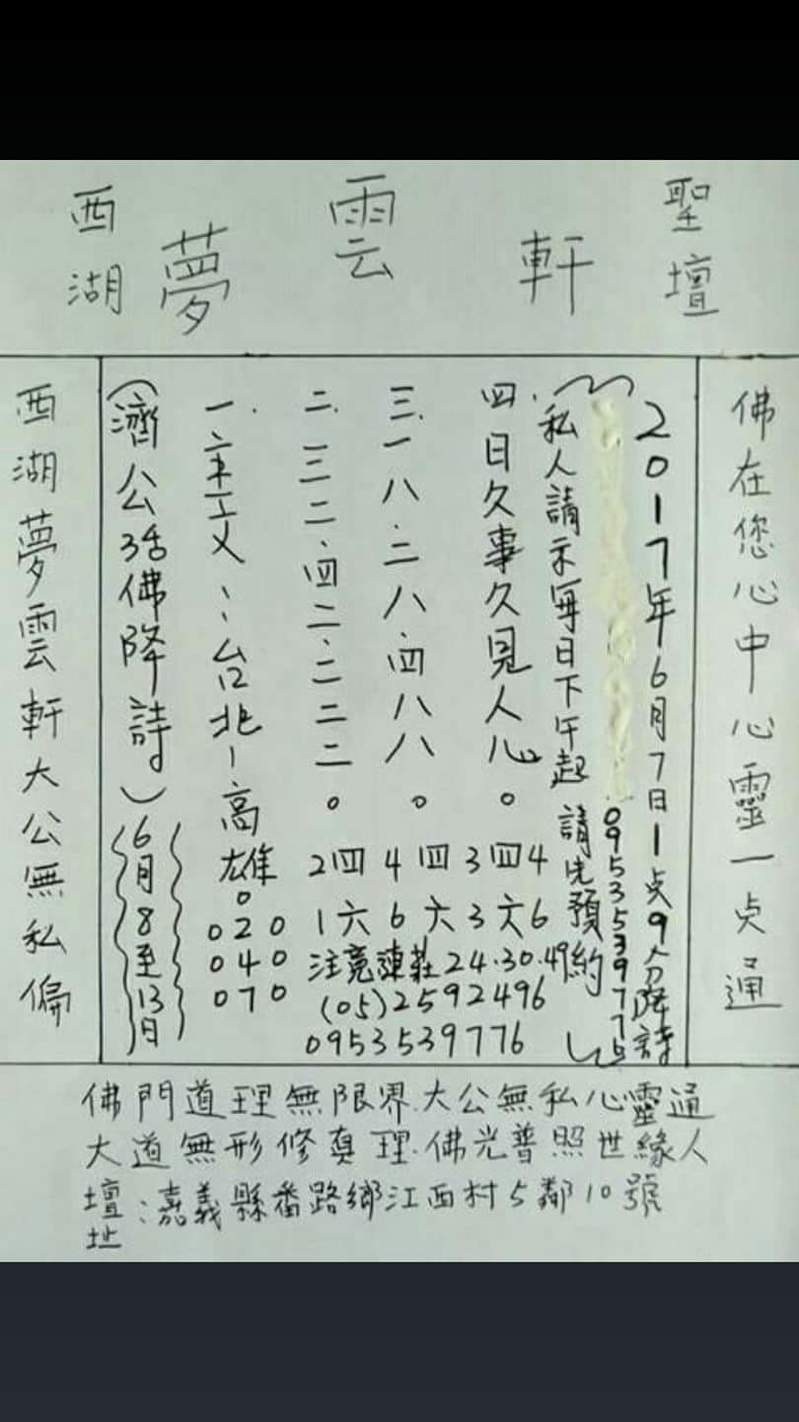 西湖夢雲軒聖壇
佛在您心中心靈一点通
2017年6月7日1点9分降詩
私人請示每日下午起請先預約
四.日久事久見人心。
三.一八.二八.四八八。
二.一三二.四二.二二二。
台北-高雄。
(濟公活佛降詩)
6月8至13日
西湖夢雲軒大公無私偏
2四4四3四4
1六6六3六6
020
040
070
24.30.49
(05)2592496
0953539776
佛門道理無限界.大公無私心靈通
大道無形修真理.佛光普照世緣人
壇址:嘉義縣番路鄉江西村5鄰10號